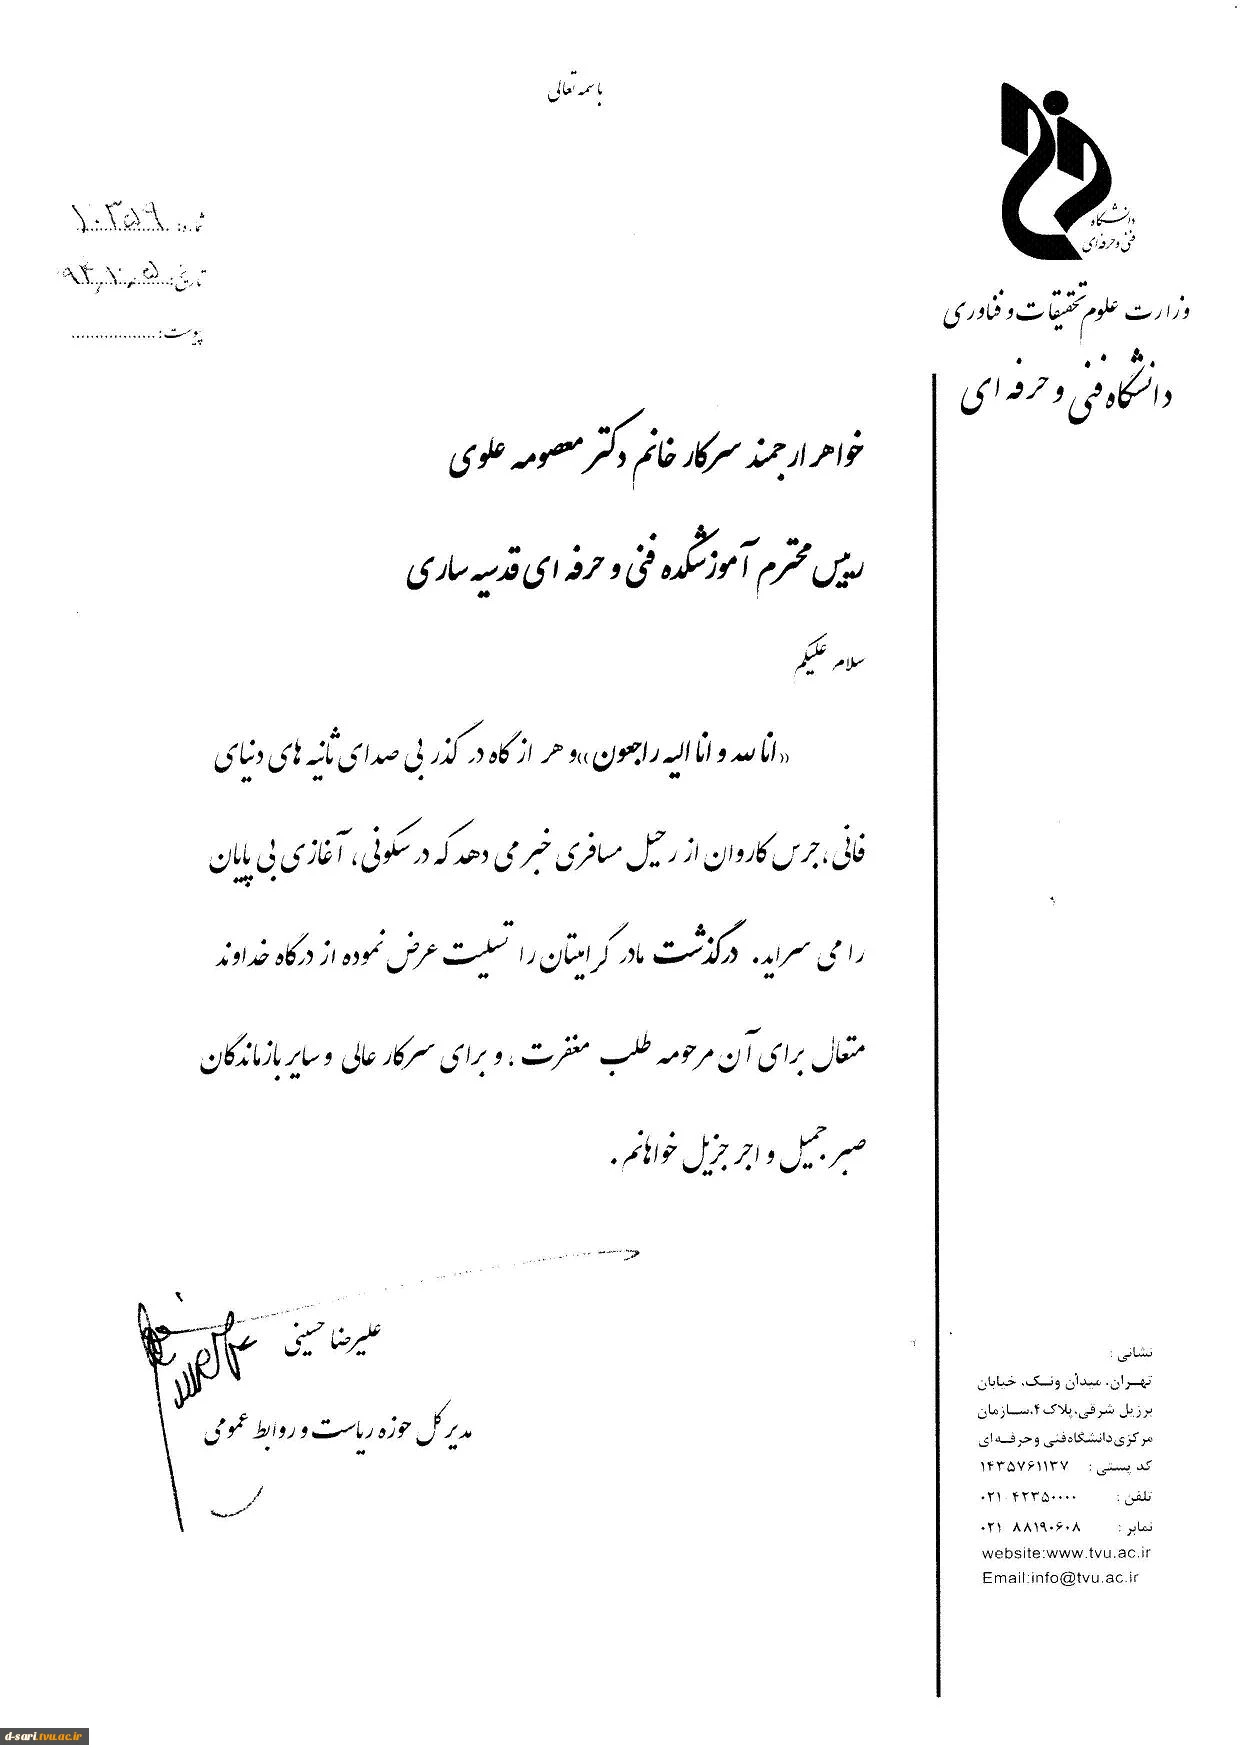 باسمه تعالی
دانشگاه
فنی و حرفه‌ای
وزارت علوم تحقیقات و فناوری
دانشگاه فنی و حرفه ای
شماره: ۱۰۳۵۱۹
تاریخ: ۹۴,۱۰,۵
پیوست: ..................
خواهر ارجمند سرکار خانم دکتر معصومه علوی
رییس محترم آموزشکده فنی و حرفه ای قدسیه ساری
سلام علیکم
«انا لله و انا الیه راجعون» و هر از گاه در گذر بی صدای ثانیه های دنیای
فانی، جرس کاروان از رحیل مسافری خبر می دهد که در سکونی، آغازی بی پایان
را می سراید. درگذشت مادر گرامیتان را تسلیت عرض نموده از درگاه خداوند
متعال برای آن مرحومه طلب مغفرت، و برای سرکار عالی و سایر بازماندگان
صبر جمیل و اجر جزیل خواهانم.
علیرضا حسینی
مدیر کل حوزه ریاست و روابط عمومی
نشانی :
تهران، میدان ونک، خیابان
برزیل شرقی، پلاک ۴، سازمان
مرکزی دانشگاه فنی و حرفه ای
کد پستی : ۱۴۳۵۷۶۱۱۳۷
تلفن : ۰۲۱ ۴۲۳۵۰۰۰۰
نمابر : ۰۲۱ ۸۸۱۹۰۶۰۸
website:www.tvu.ac.ir
Email:info@tvu.ac.ir
d-sari.tvu.ac.ir